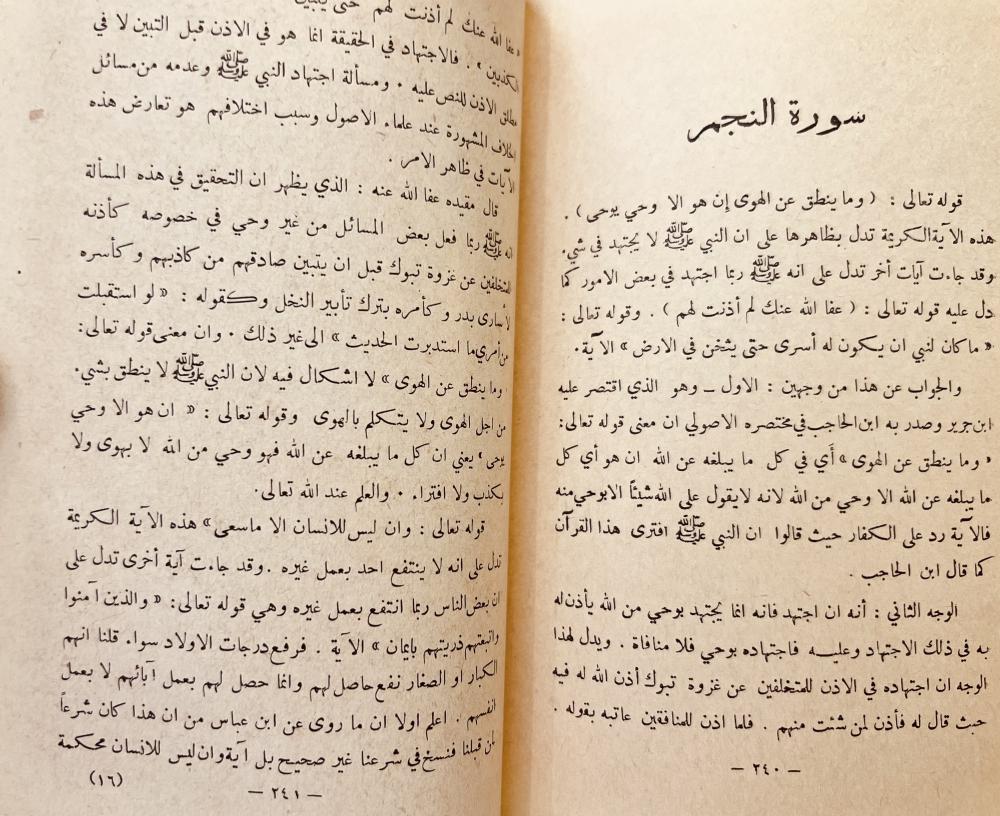 سورة النجم
قوله تعالى : ( وما ينطق عن الهوى إن هو الا وحي يوحى ) .
هذه الآية الكريمة تدل بظاهرها على ان النبي ﷺ لا يجتهد في شيء
وقد جاءت آيات أخر تدل على انه ﷺ ربما اجتهد في بعض الامور كما
دل عليه قوله تعالى : ( عفا الله عنك لم أذنت لهم ) . وقوله تعالى :
« ما كان لنبي ان يكون له أسرى حتى يثخن في الارض » الآية .
والجواب عن هذا من وجهين : الاول ـ وهو الذي اقتصر عليه
ابن جرير وصدر به ابن الحاجب في مختصره الاصولي ان معنى قوله تعالى :
« وما ينطق عن الهوى » أي في كل ما يبلغه عن الله ان هو أي كل
ما يبلغه عن الله الا وحي من الله لانه لا يقول على الله شيئاً الا بوحي منه
فالآية رد على الكفار حيث قالوا ان النبي ﷺ افترى هذا القرآن
كما قال ابن الحاجب .
الوجه الثاني : أنه ان اجتهد فانه انما يجتهد بوحي من الله يأذن له
به في ذلك الاجتهاد وعليـه فاجتهاده بوحي فلا منافاة . ويدل لهذا
الوجه ان اجتهاده في الاذن للمتخلفين عن غزوة تبوك أذن الله له فيه
حيث قال له فأذن لمن شئت منهم . فلما اذن للمنافقين عاتبه بقوله .
— ٢٤٠ —
« عفا الله عنك لم أذنت لهم حتى يتبين
الكذبين » . فالاجتهاد في الحقيقة انما هو في الاذن قبل التبين لا في
مطلق الاذن للنص عليه . ومسألة اجتهاد النبي ﷺ وعدمه من مسائل
الخلاف المشهورة عند علماء الاصول وسبب اختلافهم هو تعارض هذه
الآيات في ظاهر الامر .
قال مقيده عفا الله عنه : الذي يظهر ان التحقيق في هذه المسألة
انه ﷺ ربما فعل بعض المسائل من غير وحي في خصوصه كأذنه
للمتخلفين عن غزوة تبوك قبل ان يتبين صادقهم من كاذبهم و كأسره
لأسارى بدر و كأمره بترك تأبير النخل وكقوله : « لو استقبلت
من أمري ما استدبرت الحديث » الى غير ذلك . وان معنى قوله تعالى :
« وما ينطق عن الهوى » لا اشكال فيه لان النبي ﷺ لا ينطق بشيء
من اجل الهوى ولا يتكلم بالهوى وقوله تعالى : « ان هو الا وحي
يوحى » يعني ان كل ما يبلغه عن الله فهو وحي من الله لا بهوى ولا
بكذب ولا افتراء . والعلم عند الله تعالى .
قوله تعالى : وان ليس للانسان الا ما سعى » هذه الآية الكريمة
تدل على انه لا ينتفع احد بعمل غيره . وقد جاءت آية أخرى تدل على
ان بعض الناس ربما انتفع بعمل غيره وهي قوله تعالى : « والذين آمنوا
واتبعتهم ذريتهم بايمان » الآية . فرفع درجات الاولاد سواء قلنا انهم
الكبار او الصغار نفع حاصل لهم وانما حصل لهم بعمل آبائهم لا بعمل
انفسهم . اعلم اولا ان ما روى عن ابن عباس من ان هذا كان شرعاً
لمن قبلنا فنسخ في شرعنا غير صحيح بل آية وان ليس للانسان محكمة
— ٢٤١ — (١٦)